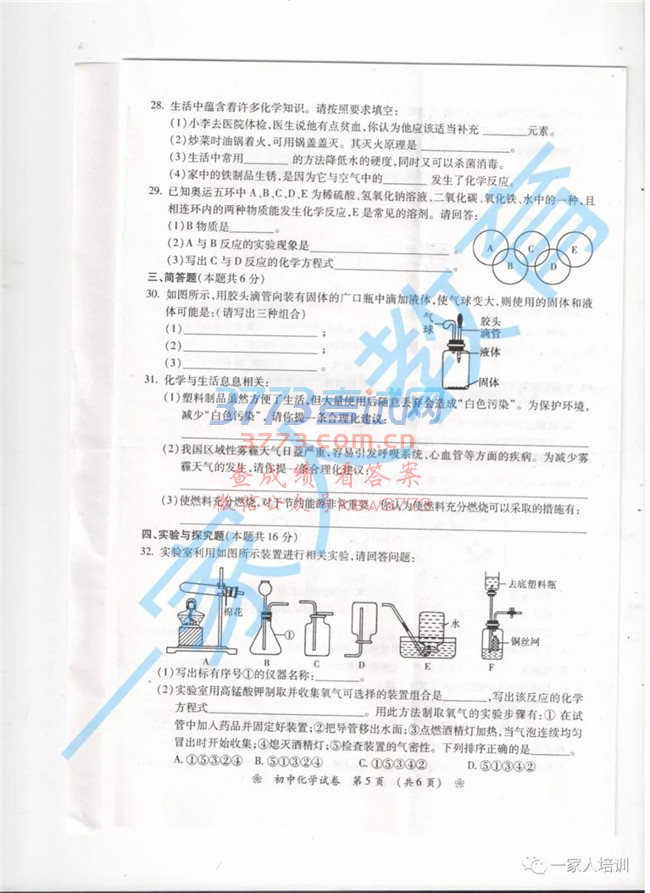 28. 生活中蕴含着许多化学知识。请按照要求填空:
(1)小李去医院体检,医生说他有点贫血,你认为他应该适当补充________元素。
(2)炒菜时油锅着火,可用锅盖盖灭。其灭火原理是________________。
(3)生活中常用________的方法降低水的硬度,同时又可以杀菌消毒。
(4)家中的铁制品生锈,是因为它与空气中的________发生了化学反应。
29. 已知奥运五环中A、B、C、D、E为稀硫酸、氢氧化钠溶液、二氧化碳、氧化铁、水中的一种,且
相连环内的两种物质能发生化学反应,E是常见的溶剂。请回答:
(1)B物质是________。
(2)A与B反应的实验现象是________________。
(3)写出C与D反应的化学方程式________________。
A C E
B D
三、简答题(本题共6分)
30. 如图所示,用胶头滴管向装有固体的广口瓶中滴加液体,使气球变大,则使用的固体和液
体可能是:(请写出三种组合)
(1)________________;
(2)________________;
(3)________________。
气球
胶头滴管
液体
固体
31. 化学与生活息息相关:
(1)塑料制品虽然方便了生活,但大量使用后随意丢弃会造成“白色污染”。为保护环境,
减少“白色污染”,请你提一条合理化建议:
(2)我国区域性雾霾天气日益严重,容易引发呼吸系统、心血管等方面的疾病。为减少雾
霾天气的发生,请你提一条合理化建议:
(3)使燃料充分燃烧,对于节约能源非常重要。你认为使燃料充分燃烧可以采取的措施有:
3773考试网
3773.com.cn
查成绩看答案
一家人教育
四、实验与探究题(本题共16分)
32. 实验室利用如图所示装置进行相关实验,请回答问题:
棉花
①
水
去底塑料瓶
铜丝网
A B C D E F
(1)写出标有序号①的仪器名称:________。
(2)实验室用高锰酸钾制取并收集氧气可选择的装置组合是________,写出该反应的化学
方程式________________。用此方法制取氧气的实验步骤有:①在试
管中加入药品并固定好装置;②把导管移出水面;③点燃酒精灯加热,当气泡连续均匀
冒出时开始收集;④熄灭酒精灯;⑤检查装置的气密性。下列排序正确的是________。
A. ①⑤③②④ B. ⑤①③②④ C. ①⑤③④② D. ⑤①③④②
初中化学试卷 第5页 (共6页)
一家人培训